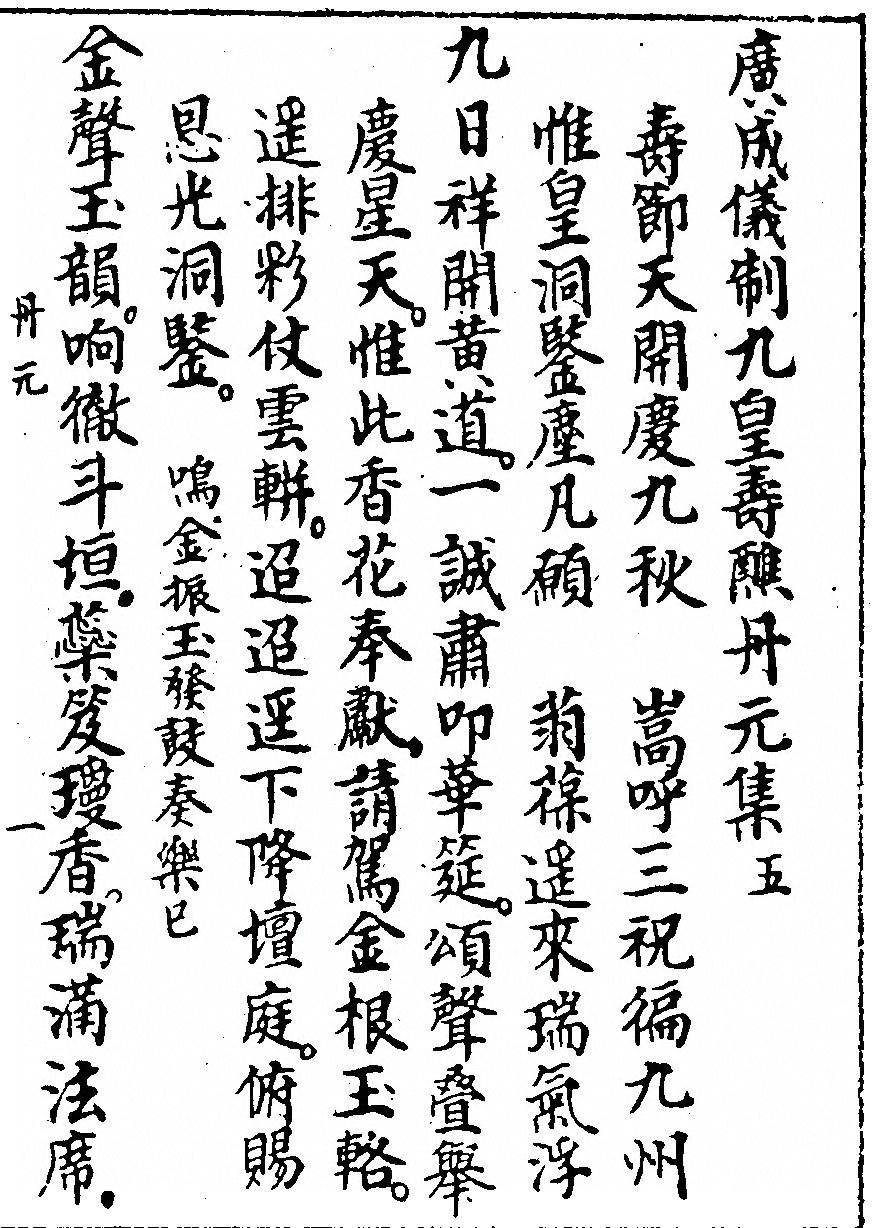 廣成儀制九皇壽醮丹元集五
壽節天開慶九秋　嵩呼三祝徧九州
惟皇洞鑒塵凡願　蓊葆遥來瑞氣浮
九日祥開黄道。一誠肅叩華筵。頌聲疊舉
慶星天。惟此香花奉獻。請駕金根玉輅。
遥排彩仗雲軿。迢迢遥下降壇庭。俯賜
恩光洞鑒。　鳴金振玉發鼓奏樂已
金聲玉韻。响徹斗垣。蘂笈瓊香。瑞滿法席。
丹元
一